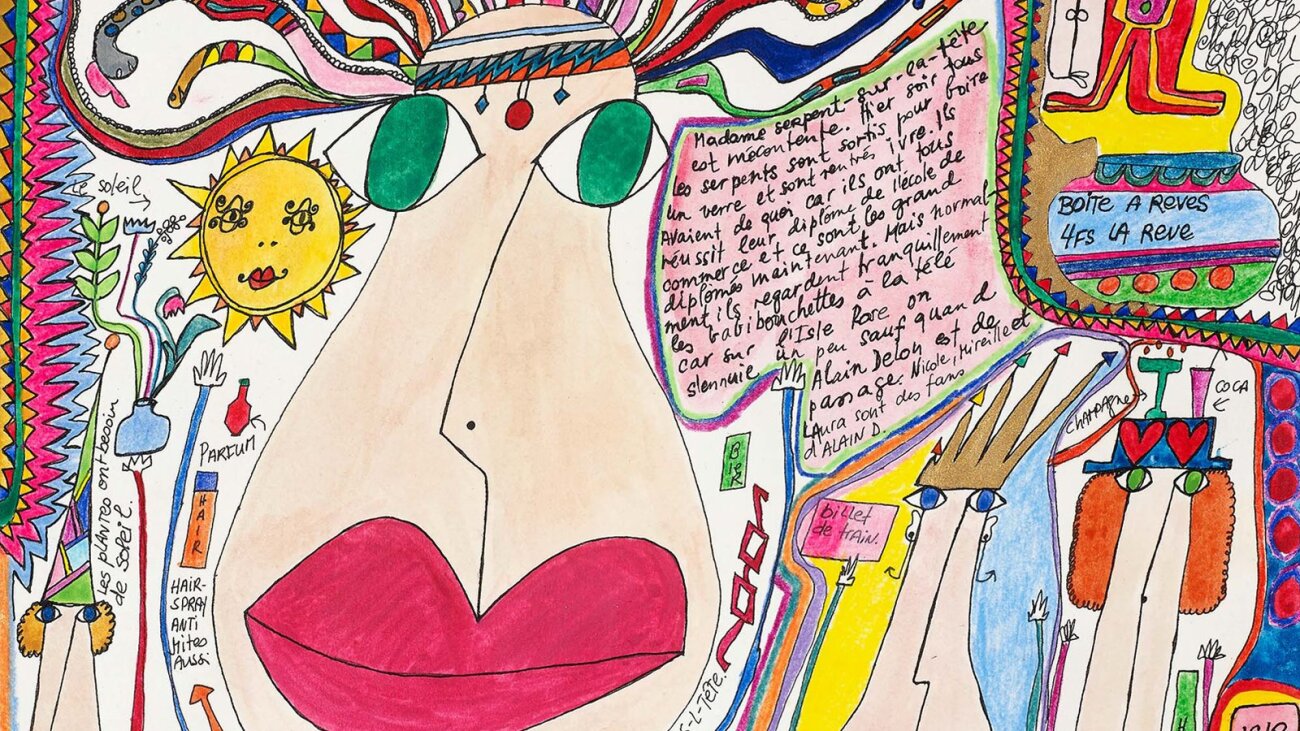 Madame serpent-sur-ça-tête
est mécontente. Hier soir tous
les serpents sont sortis pour boire
un verre et sont rentrés ivre. Ils
Avaient de quoi car ils ont tous
réussit leur diplome de l'école de
commerce et ce sont les grand
diplomés maintenant. Mais normal-
ment ils regardent tranquillement
les babibouchettes à la télé
car sur l'Isle Rose on
s'ennuie un peu sauf quand
Alain Delon est de
passage. Nicole, Mireille et
Laura sont des fans
d'ALAIN D.
BOITE A REVES
4FS LA REVE
Le soleil
PARFUM
Les plantes ont besoin
de soleil.
HAIR
HAIR-
SPRAY
ANTI
Mites
Aussi
BIER
billet
de train.
CHAMPAGNE
COCA
S-L-TÊTE.
H